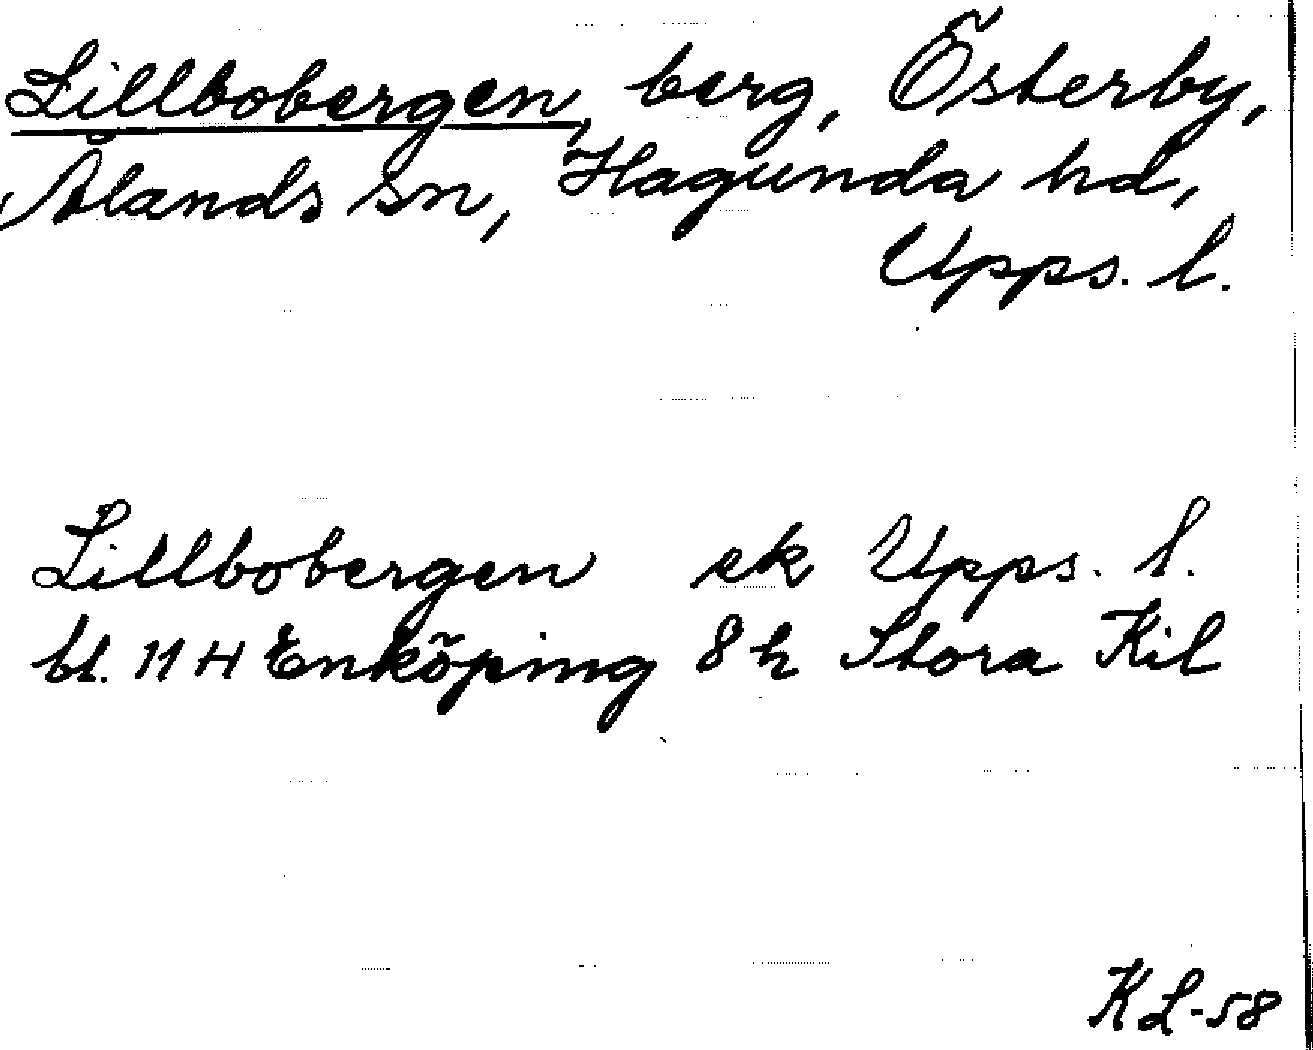 Lillbobergen, berg, Österby,
Ålands sn, Hagunda hd,
Upps. l.
Lillbobergen ek Upps. l.
bl. 11 H Enköping 8 h Stora Kil
KL-58